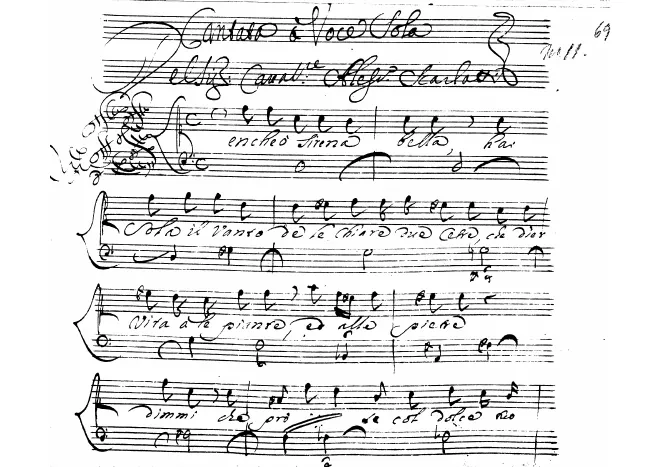 Cantata à Voce Sola
Del Sig.r Caval.re Aless.o Scarlatti
69
No 11.
encheò sirena bella, hai
Sola il vanto de le chiare due Cetre, che dior
Vita à le piante, ed alle pietre
dimmi che prò se col dolce